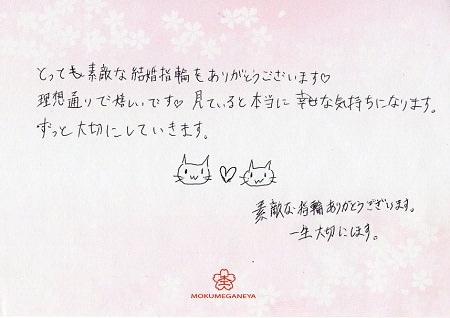 とっても素敵な結婚指輪をありがとうございます♡
理想通りで嬉しいです♡ 見ていると本当に幸せな気持ちになります。
ずっと大切にしていきます。
素敵な指輪ありがとうございます。
一生大切にします。
MOKUMEGANEYA